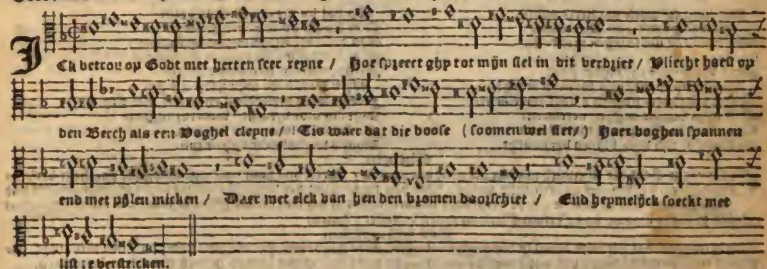 ICk betrou op Godt met herten seer reyne / Hoe spreect ghy tot mijn siel in dit verdriet / Vliecht haest op
den Berch als een Voghel cleyne / Tis waer dat die boose (soomen wel siet/) Haer boghen spannen
end met pijlen micken / Daer met elck van hen den vromen doorschiet / End heymelijck soeckt met
list te verstricken.